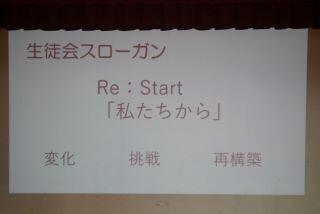 生徒会スローガン
Re：Start
「私たちから」
変化 挑戦 再構築